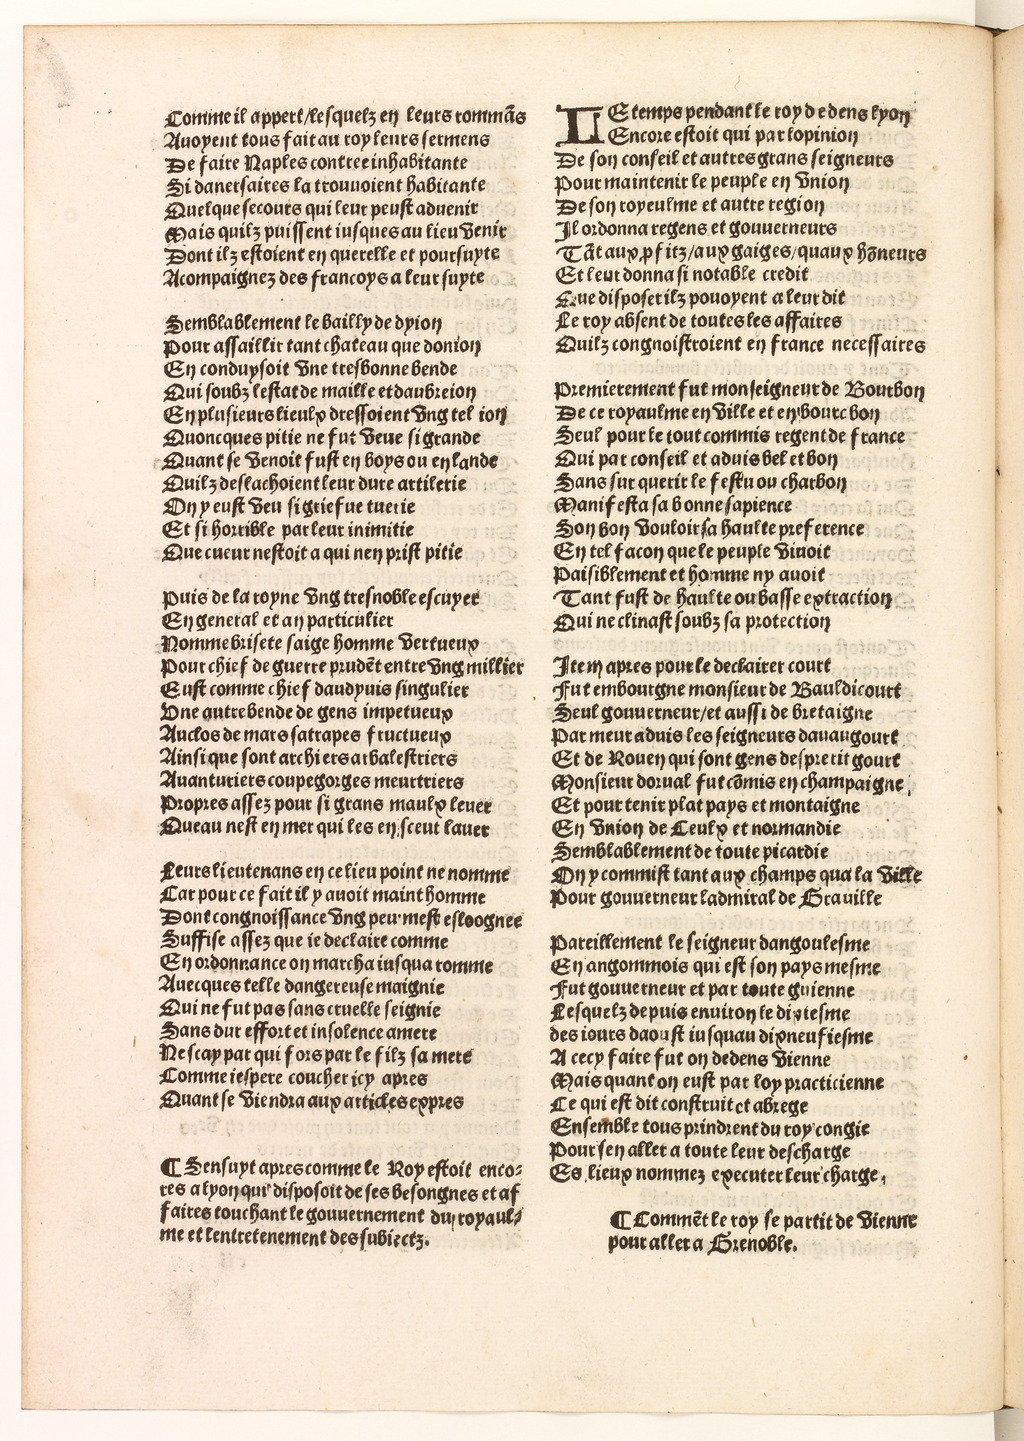 Comme il appert/lesquelz en leurs rommãs
Avoyent tous fait au roy leurs sermens
De faire Naples contree inhabitante
Si daversaires la trouvoient habitante
Quelque secours qui leur peust advenir
Mais quilz puissent iusques au lieu venir
Dont ilz estoient en querelle et poursuyte
Acompaignez des francoys a leur suyte
Semblablement le bailly de dyion
Pour assaillir tant chateau que donion
En conduysoit vne tresbonne bende
Qui soubz lestat de maille et daubreion
En plusieurs lieulx dressoient vng tel ion
Quoncques pitie ne fut veue si grande
Quant se venoit fust en boys ou en lande
Quilz deslachoient leur dure artilerie
On y eust veu si griefue tuerie
Et si horrible par leur inimitie
Que cueur nestoit a qui nen prist pitie
Puis de la royne vng tresnoble escuyer
En general et an particulier
Nomme brisete saige homme vertueux
Pour chief de guerre prudẽt entre vng millier
Eust comme chief daudpuis singulier
Vne autre bende de gens impetueux
Auclos de mars satrapes fructueux
Ainsi que sont archiers arbalestriers
Avanturiers coupegorges meurtriers
Propres assez pour si grans maulx lever
Queau nest en mer qui les en sceut laver
Leurs lieutenans en ce lieu point ne nomme
Car pour ce fait il y avoit maint homme
Dont congnoissance vng peu mest esloognee
Suffise assez que ie declaire comme
En ordonnance on marcha iusqua romme
Avecques telle dangereuse maignie
Qui ne fut pas sans cruelle seignie
Sans dur effort et insolence amere
Ne scay par qui fors par le filz sa mere
Comme iespere coucher icy apres
Quant se viendra aux articles expres
¶ Sensuyt apres comme le Roy estoit enco⸗
res a lyon qui disposoit de ses besongnes et af
faires touchant le gouvernement du royaul⸗
me et lentretenement des subiectz.
LE temps pendant le roy de dens lyon
Encore estoit qui par lopinion
De son conseil et autres grans seigneurs
Pour maintenir le peuple en vnion
De son royeulme et autre region
Il ordonna regens et gouverneurs
Tãt aux ꝓfitz/aux gaiges/quaux hõneurs
Et leur donna si notable credit
Que disposer ilz pouoyent a leur dit
Le roy absent de toutes les affaires
Quilz congnoistroient en france necessaires
Premierement fut monseigneur de Bourbon
De ce royaulme en ville et en bourc bon
Seul pour le tout commis regent de france
Qui par conseil et aduis bel et bon
Sans sur querir le festu ou charbon
Manifesta sa bonne sapience
Son bon vouloir sa haulte preference
En tel facon que le peuple vivoit
Paisiblement et homme ny avoit
Tant fust de haulte ou basse extraction
Qui ne clinast soubz sa protection
Item apres pour le declairer court
Fut embourgne monsieur de Bauldicourt
Seul gouverneur/et aussi de bretaigne
Par meur aduis les seigneurs davaugourt
Et de Rouen qui sont gens desperit gourt
Monsieur dorval fut cõmis en champaigne,
Et pour tenir plat pays et montaigne
En vnion de Ceulx et normandie
Semblablement de toute picardie
On y commist tant aux champs qua la ville
Pour gouverneur ladmiral de Graville
Pareillement le seigneur dangoulesme
En angommois qui est son pays mesme
Fut gouverneur et par toute guienne
Lesquelz depuis environ le dixiesme
des iours daoust iusquau dixneufiesme
A cecy faire fut on dedens vienne
Mais quant on eust par loy practicienne
Ce qui est dit construit et abrege
Ensemble tous prindrent du roy congie
Pour sen aller a toute leur descharge
Es lieux nommez executer leur charge,
¶ Commẽt le roy se partit de vienne
pour aller a Grenoble.